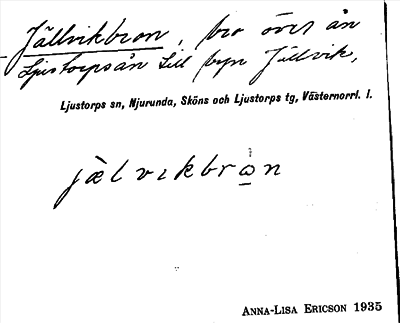 Jällvikbron, bro över ån
Ljustorpsån till byn Jällvik,
Ljustorps sn, Njurunda, Sköns och Ljustorps tg, Västernorrl. l.
jælvikbrωn
ANNA-LISA ERICSON 1935